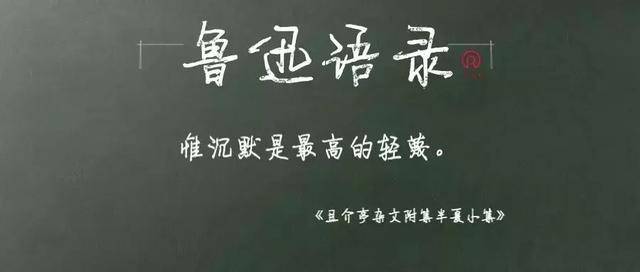 鲁迅语录
惟沉默是最高的轻蔑。
《且介亭杂文附集半夏小集》